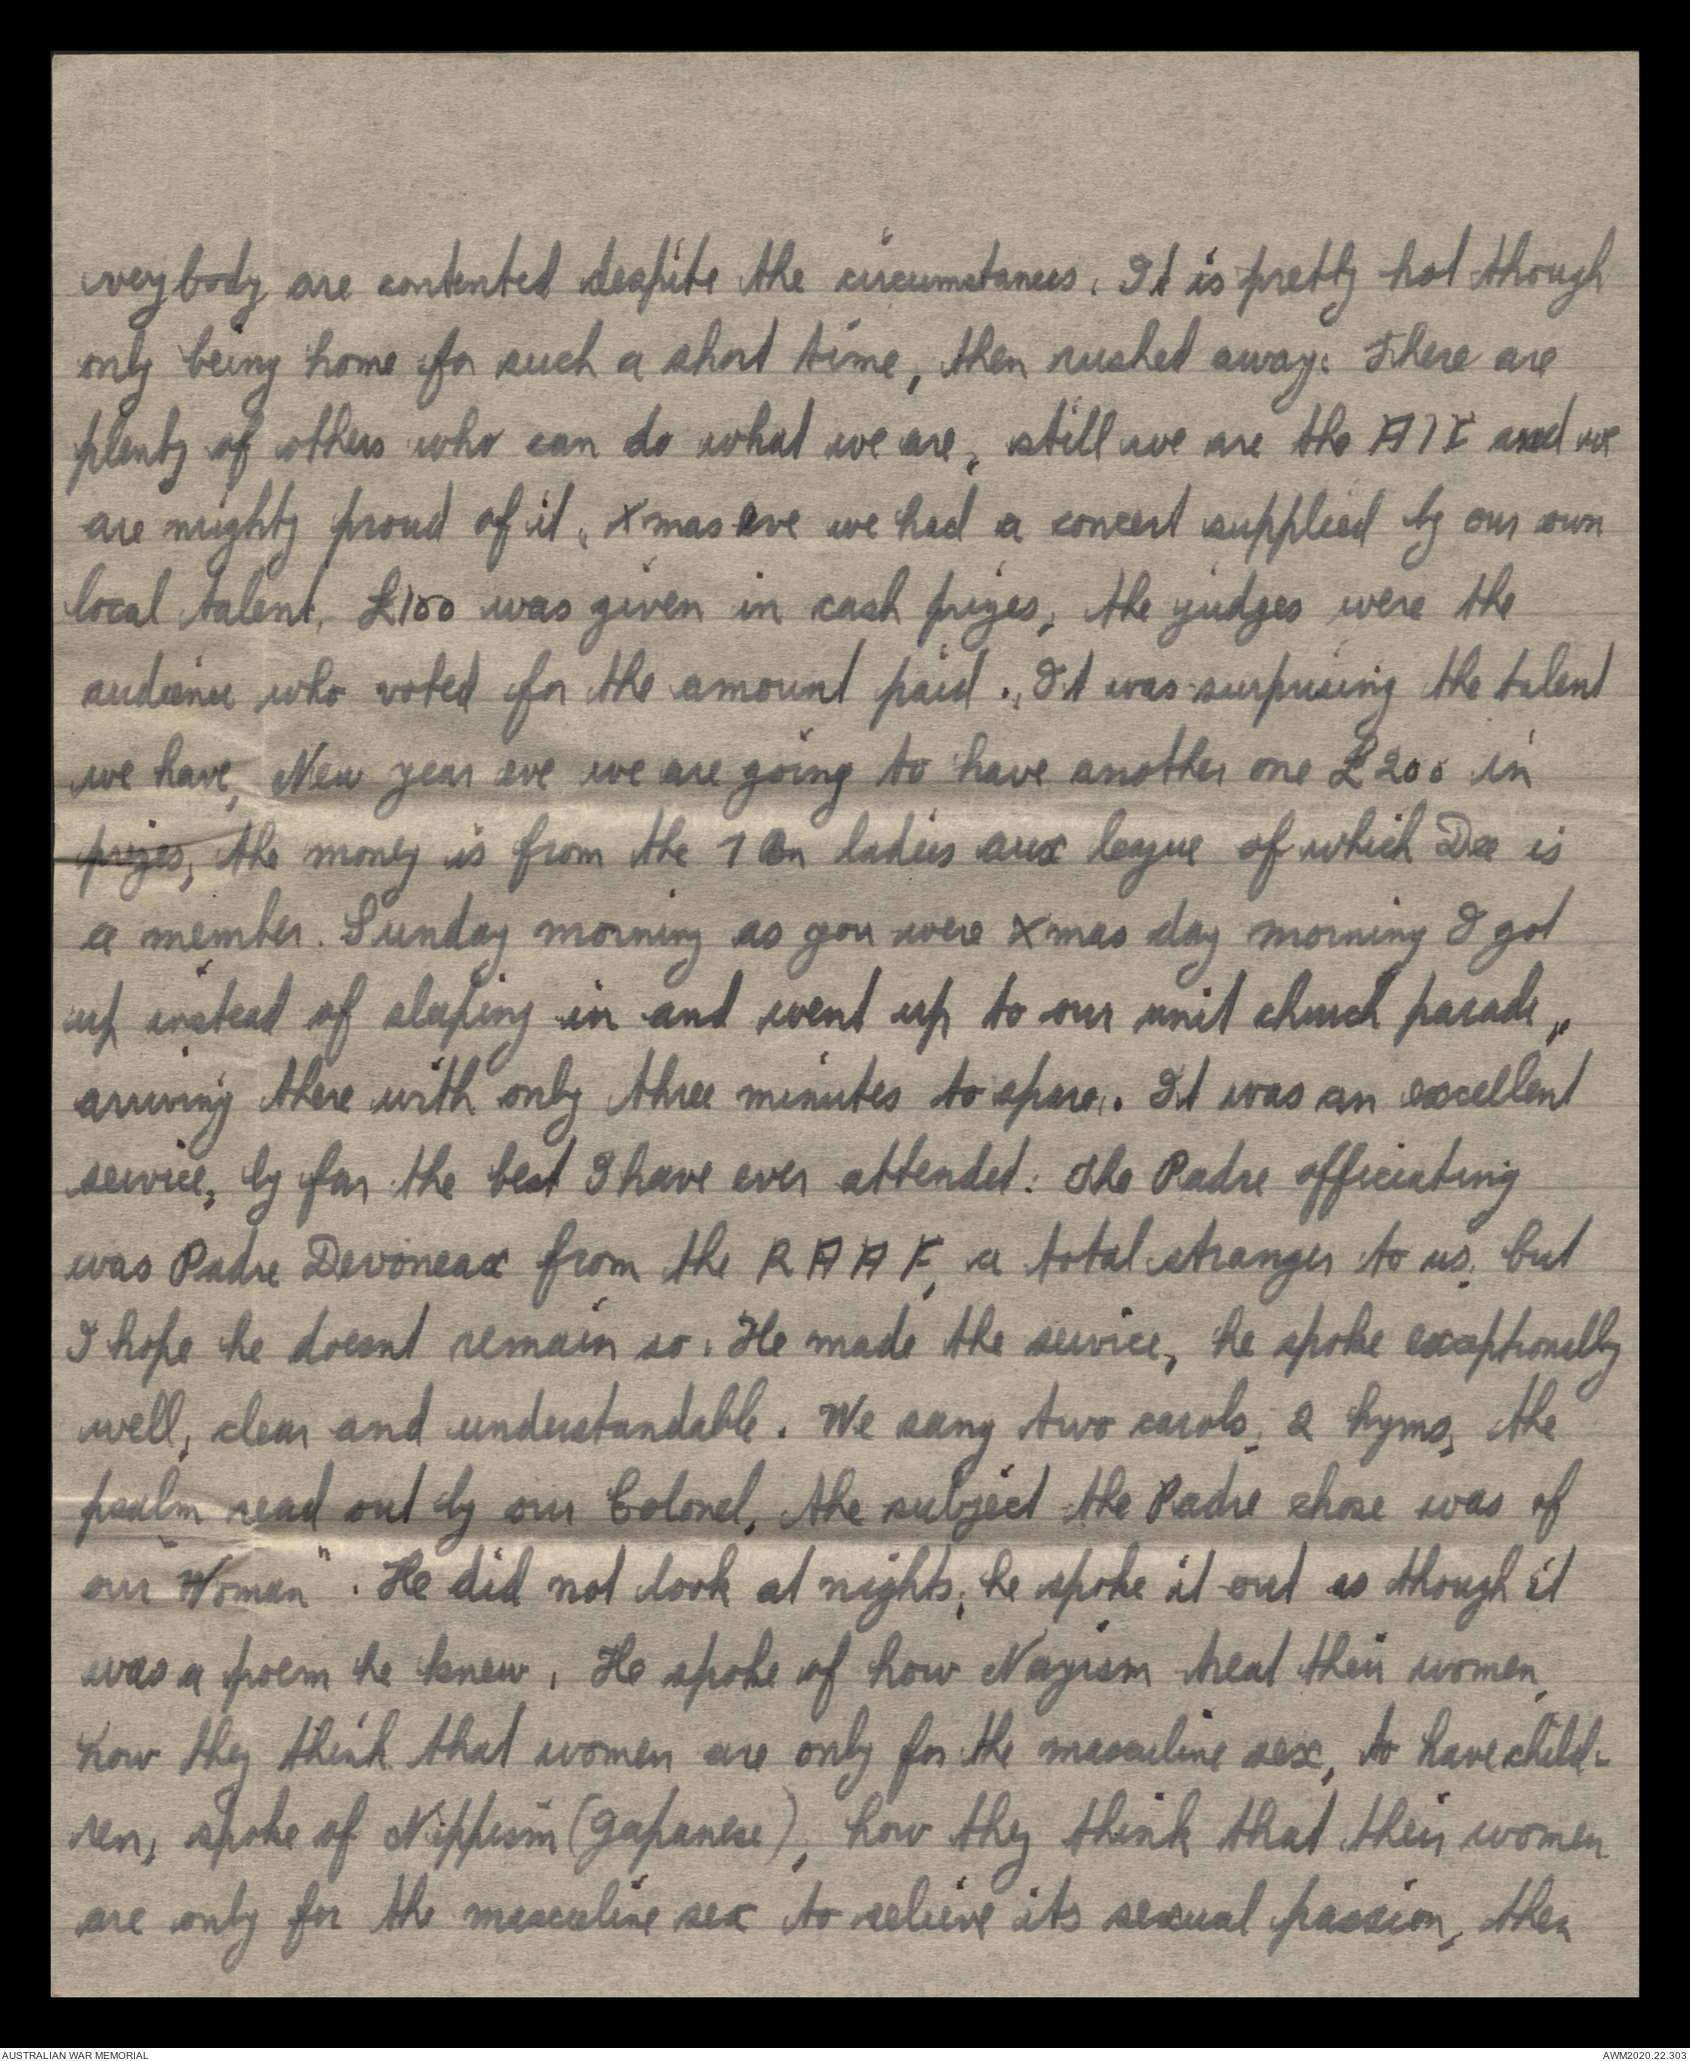 verybody are contented despite the circumstances. It is pretty hot though
only being home for such a short time, then rushed away. There are
plenty of others who can do what we are, still we are the AIF and we
are mighty proud of it. Xmas eve we had a concert supplied by our own
local talent, £100 was given in cash prizes, the judges were the
audience who voted for the amount paid. It was surprising the talent
we have, New year eve we are going to have another one £200 in
prizes, the money is from the 7 Bn ladies aux league of which Dee is
a member. Sunday morning as you were Xmas day morning I got
up instead of sleeping in and went up to our unit church parade,
arriving there with only three minutes to spare. It was an excellent
service, by far the best I have ever attended. The Padre officiating
was Padre Devoneax from the RAAF, a total stranger to us, but
I hope he doesnt remain so. He made the service, he spoke exceptionally
well, clear and understandable. We sang two carols, 2 hyms, the
psalm read out by our Colonel, the subject the Padre chose was of
our "Woman". He did not look at nights, he spoke it out as though it
was a poem he knew. He spoke of how Nazism treat their women,
how they think that women are only for the masculine sex, to have child-
ren, spoke of Nippism (Japanese), how they think that their women
are only for the masculine sex to relieve its sexual passion, then
AUSTRALIAN WAR MEMORIAL
AWM2020.22.303